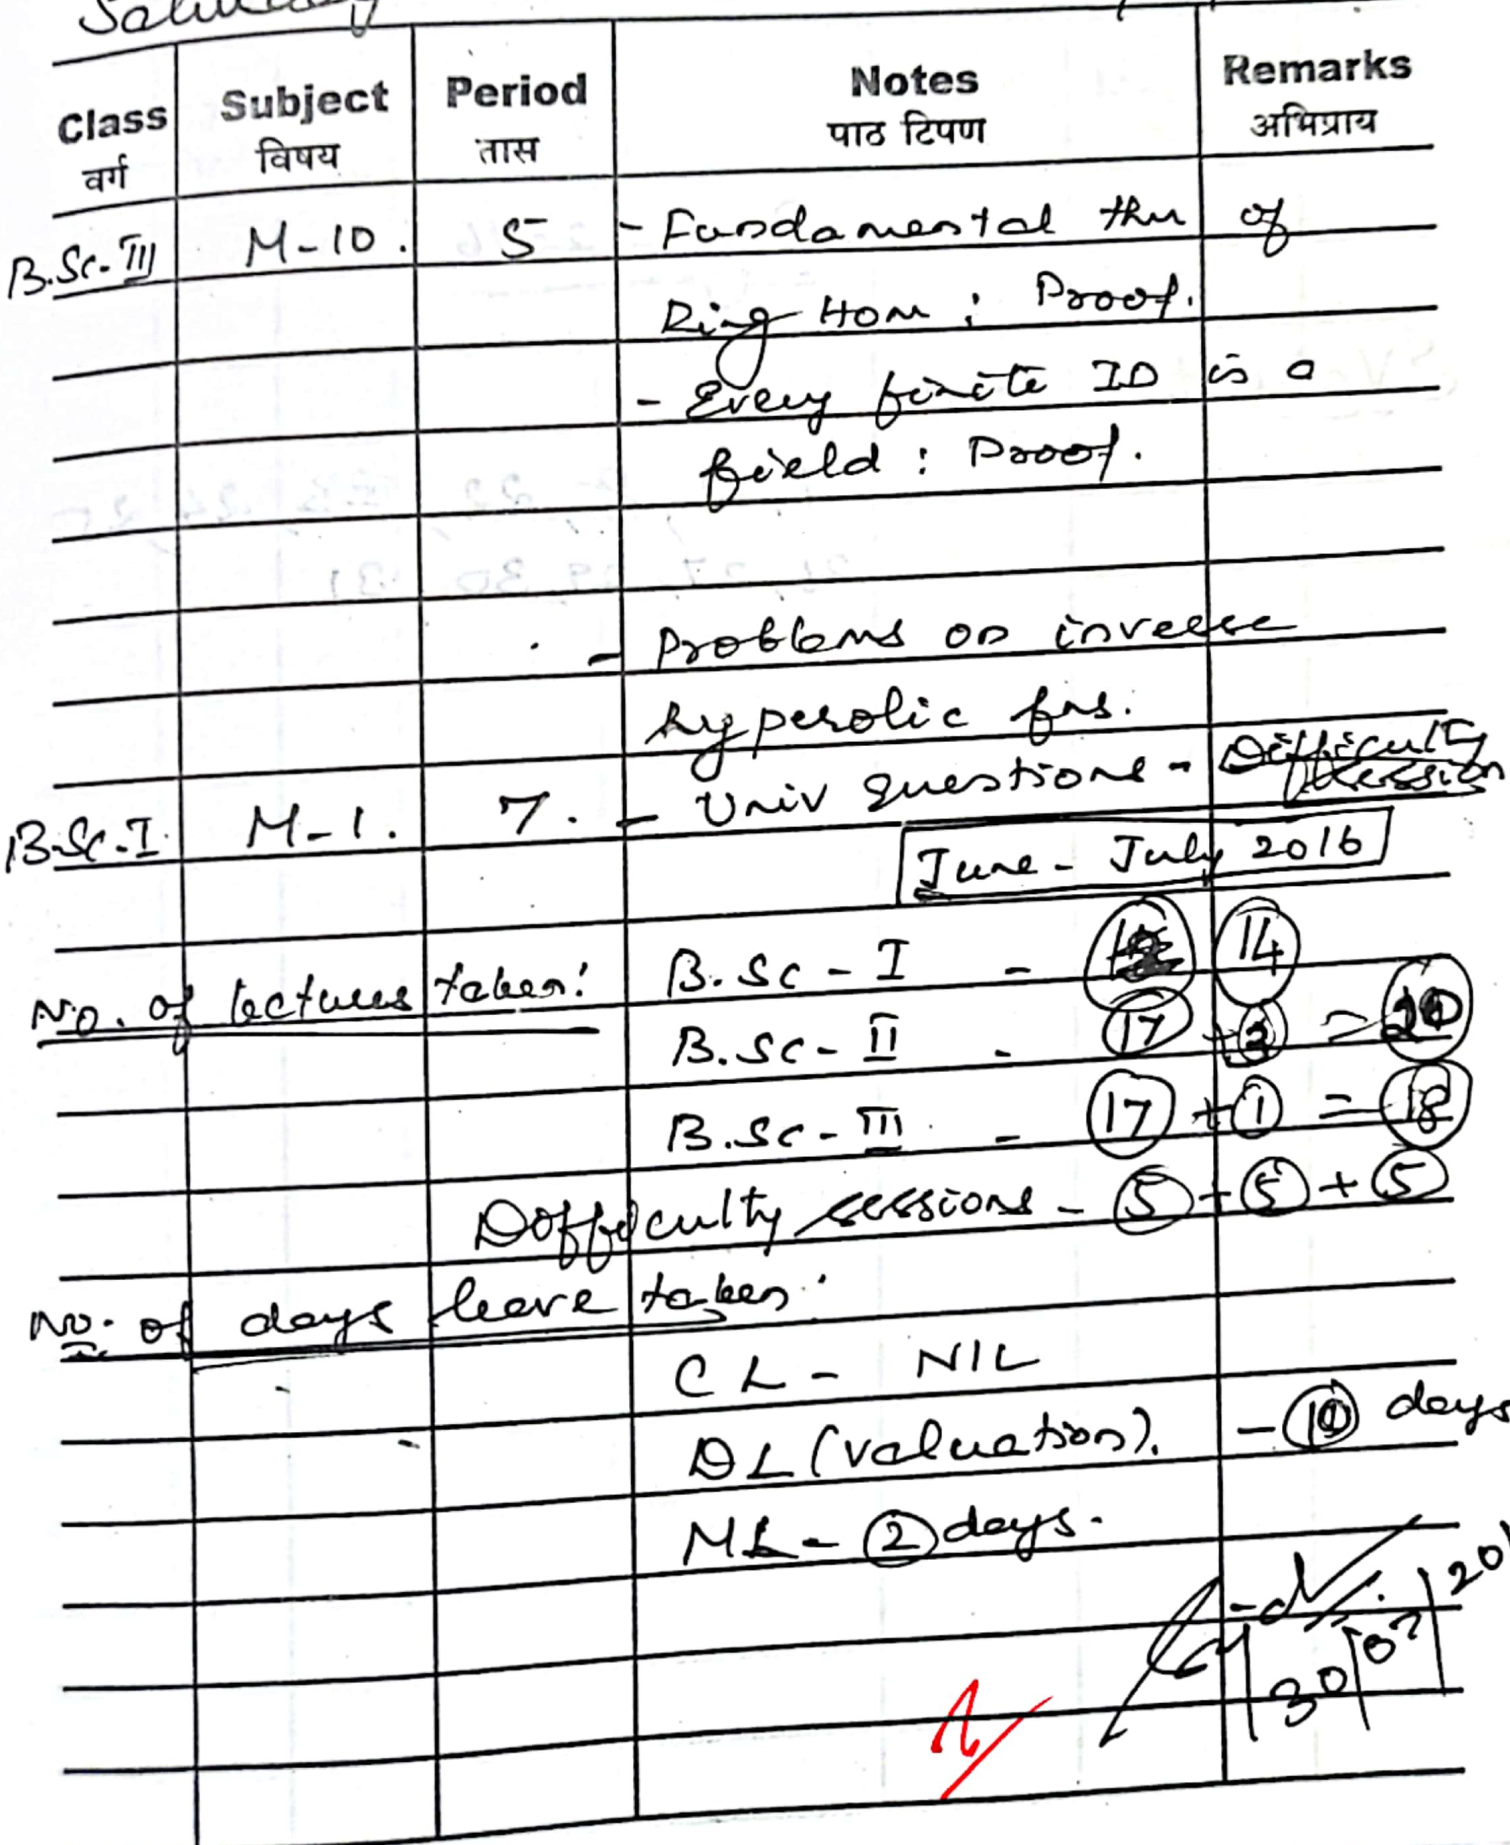 Saturday
Class Subject Period Notes Remarks
वर्ग विषय तास पाठ टिपण अभिप्राय
B.Sc-III M-10. 5 - Fundamental thm of
Ring Hom : Proof.
- Every finite ID is a
field : Proof.
- Problems on inverse
hyperolic fns.
B.Sc-I M-1. 7. - Univ questions - Difficulty session
June - July 2016
No. of lectures taken: B.Sc - I - 14
B.Sc - II - 17 + 3 =
B.Sc - III - 17 + 1 = 18
Difficulty sessions - 5 + 5 + 5
No. of days leave taken:
CL - NIL
DL (valuation). - days
ML - 2 days.
30/07/201